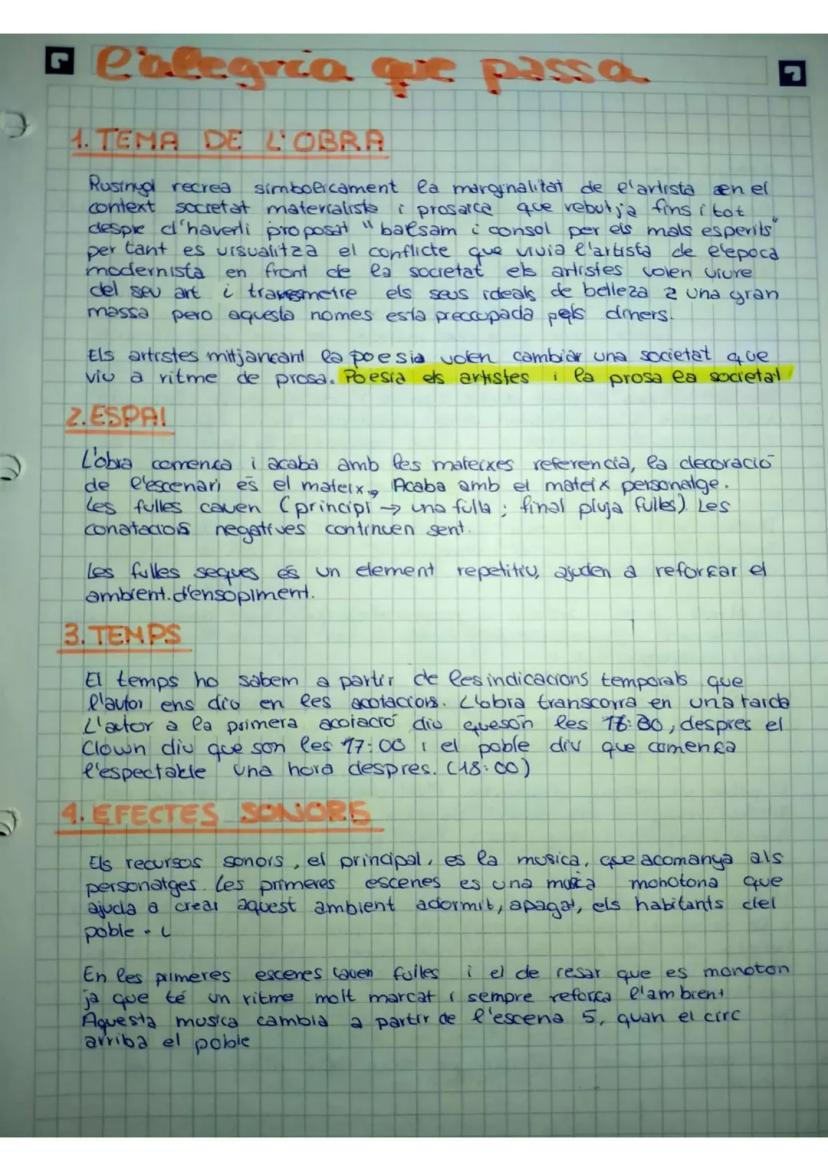 L'alegria que passa
1. TEMA DE L'OBRA
Rusinyol recrea simbolicament la marginalitat de l'artista en el
context societat materialista i prosaica que rebutja fins i tot
despre d'haverli proposat "balsam i consol per els mals esperits"
per tant es visualitza el conflicte que vivia l'artista de l'epoca
modernista en front de la societat els artistes volen viure
del seu art i transmetre els seus ideals de belleza a una gran
massa pero aquesta nomes esta preocupada pels diners.
Els artistes mitjancant la poesia volen cambiar una societat que
viu a ritme de prosa. Poesia els artistes i la prosa la societat
2. ESPAI
L'obra comenca i acaba amb les mateixes referencia, la decoració
de l'escenari es el mateix, Acaba amb el mateix personatge.
Les fulles cauen (principi → una fulla ; final pluja fulles). Les
conatacions negatives continuen sent.
Les fulles seques es un element repetitiu, ajuden a reforçar el
ambient d'ensopiment.
3. TEMPS
El temps ho sabem a partir de les indicacions temporals que
l'autor ens diu en les acotacions. L'obra transcorra en una tarda
L'autor a la primera acotació diu que són les 16:30, despres el
Clown diu que son les 17:00 i el poble diu que comença
l'espectakle una hora despres. (18:00)
4. EFECTES SONORS
Els recursos sonors, el principal, es la musica, que acomanya als
personatges. Les primeres escenes es una musica monotona que
ajuda a crear aquest ambient adormit, apagat, els habitants del
poble.
En les primeres escenes cauen fulles i el de resar que es monoton
ja que té un ritme molt marcat i sempre reforça l'ambient
Aquesta musica cambia a partir de l'escena 5, quan el circ
arriba el poble